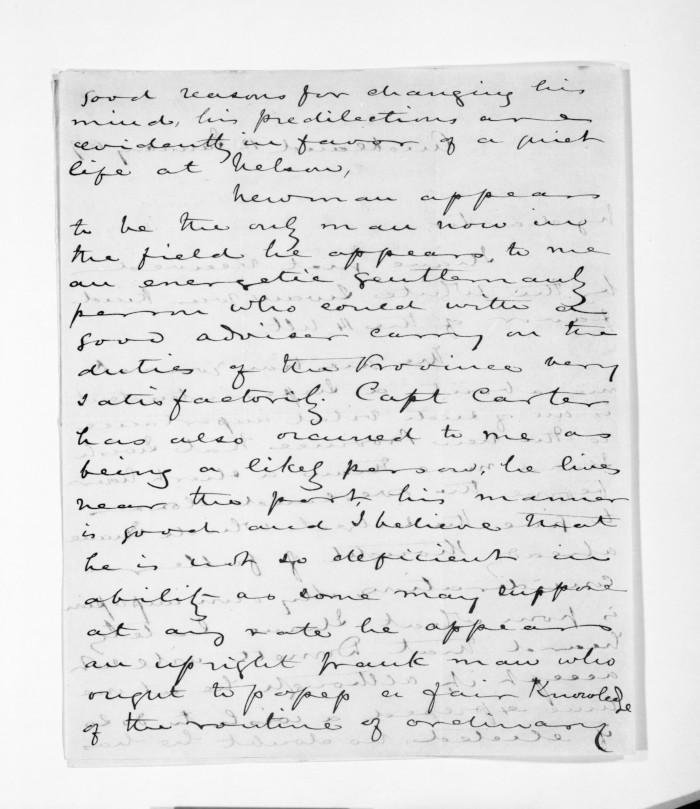 good reasons for changing his
mind, his predilections are
evidently in favor of a quiet
life at Nelson,
Newman appears
to be the only man now in
the field he appears to me
an energetic gentlemanly
person who could with a
good adviser carry on the
duties of the Province very
satisfactorily. Capt Carter
has also occured to me as
being a likely person, he lives
near the port, his manner
is good and I believe that
he is not so deficient in
ability as some may suppose
at any rate he appears
an upright frank man who
ought to possess a fair Knowledge
of the routine of ordinary